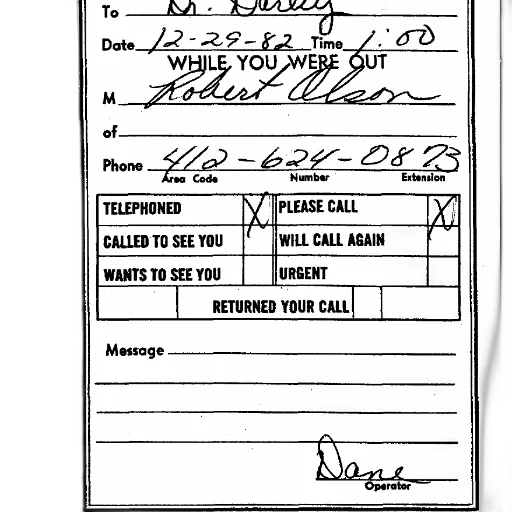 To Dr.
Date 12-29-82 Time 1:00
WHILE YOU WERE OUT
M Robert Olson
of
Phone 412-624-0873
Area Code Number Extension
TELEPHONED X PLEASE CALL X
CALLED TO SEE YOU WILL CALL AGAIN
WANTS TO SEE YOU URGENT
RETURNED YOUR CALL
Message
Dane
Operator